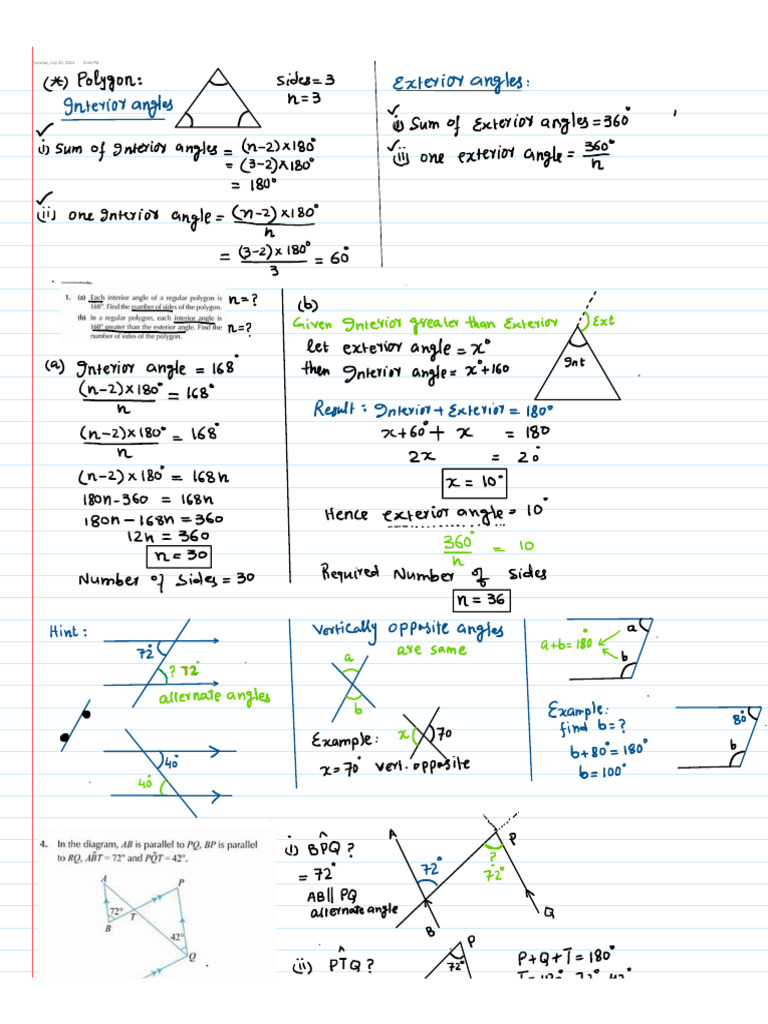 Tuesday, July 30, 2024 9:38 PM
(*) Polygon:
Interior angles
sides = 3
n = 3
i) Sum of Interior angles = (n-2)×180°
= (3-2)×180°
= 180°
(ii) one Interior angle = (n-2)×180°/n
= (3-2)×180°/3 = 60°
Exterior angles:
(i) Sum of Exterior angles = 360°
(ii) one exterior angle = 360°/n
1. (a) Each interior angle of a regular polygon is
168°. Find the number of sides of the polygon.
n=?
(b) In a regular polygon, each interior angle is
160° greater than the exterior angle. Find the
number of sides of the polygon.
n=?
(a) Interior angle = 168°
(n-2)×180°/n = 168°
(n-2)×180°/n = 168°
(n-2)×180° = 168n
180n-360 = 168n
180n-168n = 360
12n = 360
n = 30
Number of sides = 30
(b)
Given Interior greater than Exterior
let exterior angle = x°
then Interior angle = x°+160
Ext
Int
Result: Interior + Exterior = 180°
x+60° + x = 180
2x = 20°
x = 10°
Hence exterior angle = 10°
360°/n = 10
Required Number of sides
n = 36
Hint:
72°
? 72°
alternate angles
40°
40°
Vertically opposite angles
are same
a
b
Example:
x
70
x = 70° vert. opposite
a+b=180°
a
b
Example:
find b=?
b+80°=180°
b=100°
80°
b
4. In the diagram, AB is parallel to PQ, BP is parallel
to RQ, AB̂T = 72° and PQ̂T = 42°.
A
P
72°
T
B
42°
Q
i) BP̂Q ?
= 72°
AB∥PQ
alternate angle
A
P
72°
?
72°
Q
B
(ii) PT̂Q ?
P
72°
P+Q+T=180°